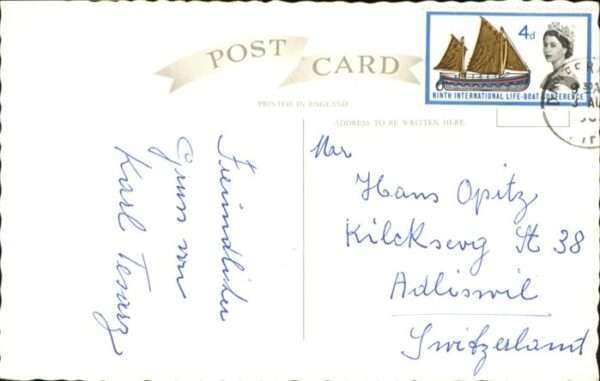 POST CARD
PRINTED IN ENGLAND
ADDRESS TO BE WRITTEN HERE.
4d
NINTH INTERNATIONAL LIFE-BOAT CONFERENCE
Freundlicher
Gruss von
Karl
Hans Opitz
Kilcksevg St 38
Adliswil
Switzerland